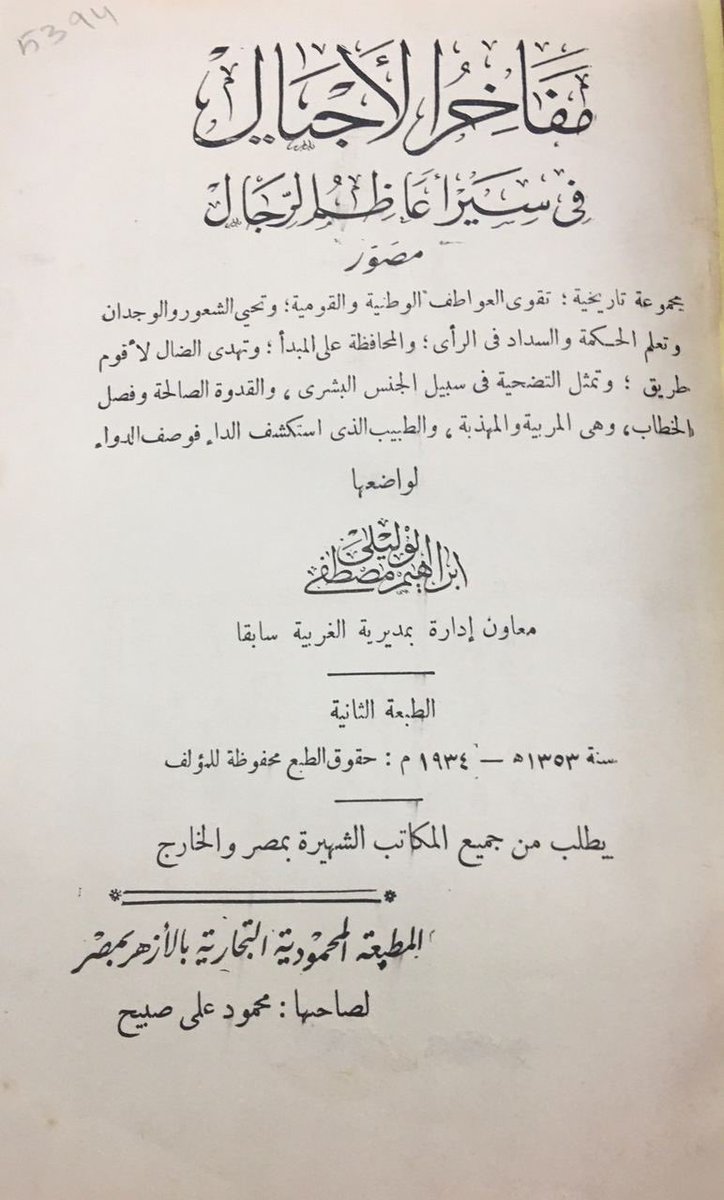 5394
مفاخر الأجيال
في سير أعاظم الرجال
مصور
مجموعة تاريخية ؛ تقوى العواطف الوطنية والقومية ؛ وتحيي الشعور والوجدان
وتعلم الحكمة والسداد فى الرأى ؛ والمحافظة على المبدأ ؛ وتهدى الضال لأقوم
طريق ؛ وتمثل التضحية فى سبيل الجنس البشرى ، والقدوة الصالحة وفصل
الخطاب ، وهى المربية والمهذبة ، والطبيب الذى استكشف الداء فوصف الدواء
لواضعها
ابراهيم مصطفى الوليلى
معاون إدارة بمديرية الغربية سابقا
الطبعة الثانية
سنة ١٣٥٣ه — ١٩٣٤ م : حقوق الطبع محفوظة للمؤلف
يطلب من جميع المكاتب الشهيرة بمصر والخارج
المطبعة المحمودية التجارية بالأزهر بمصر
لصاحبها : محمود على صبيح